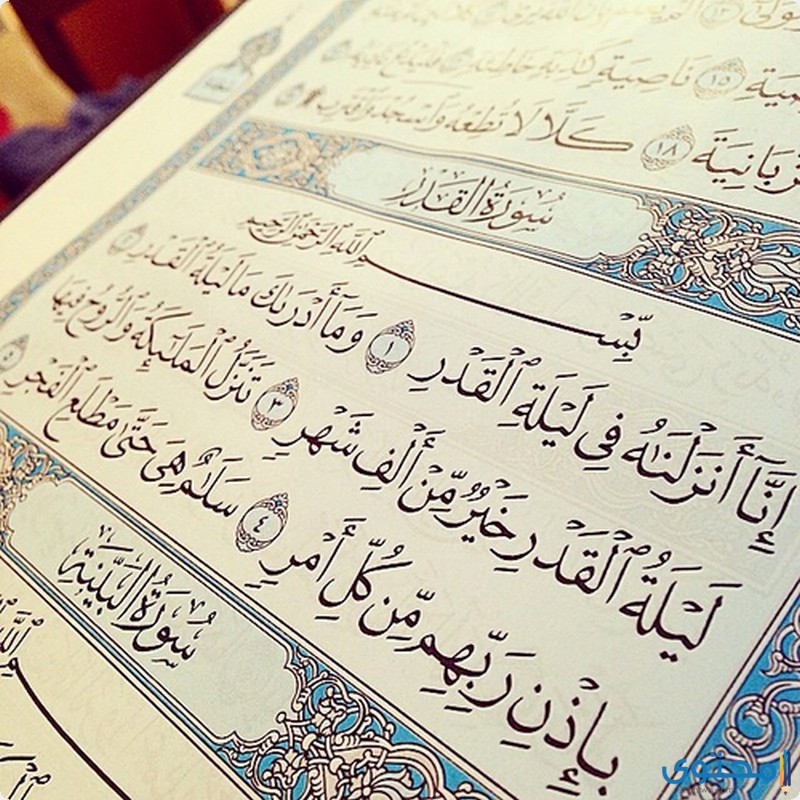 نَاصِيَةٍ كَٰذِبَةٍ خَاطِئَةٍ
ٱلزَّبَانِيَةَ ١٨ كَلَّا لَا تُطِعْهُ وَٱسْجُدْ وَٱقْتَرِب ۩
سُورَةُ القَدْرِ
بِّسْمِ ٱللَّهِ ٱلرَّحْمَٰنِ ٱلرَّحِيمِ
إِنَّآ أَنزَلْنَٰهُ فِى لَيْلَةِ ٱلْقَدْرِ ١ وَمَآ أَدْرَىٰكَ مَا لَيْلَةُ ٱلْقَدْرِ ٢
لَيْلَةُ ٱلْقَدْرِ خَيْرٌ مِّنْ أَلْفِ شَهْرٍ ٣ تَنَزَّلُ ٱلْمَلَٰٓئِكَةُ وَٱلرُّوحُ فِيهَا
بِإِذْنِ رَبِّهِم مِّن كُلِّ أَمْرٍ ٤ سَلَٰمٌ هِىَ حَتَّىٰ مَطْلَعِ ٱلْفَجْرِ ٥
سُورَةُ البَيِّنَةِ
محتوى